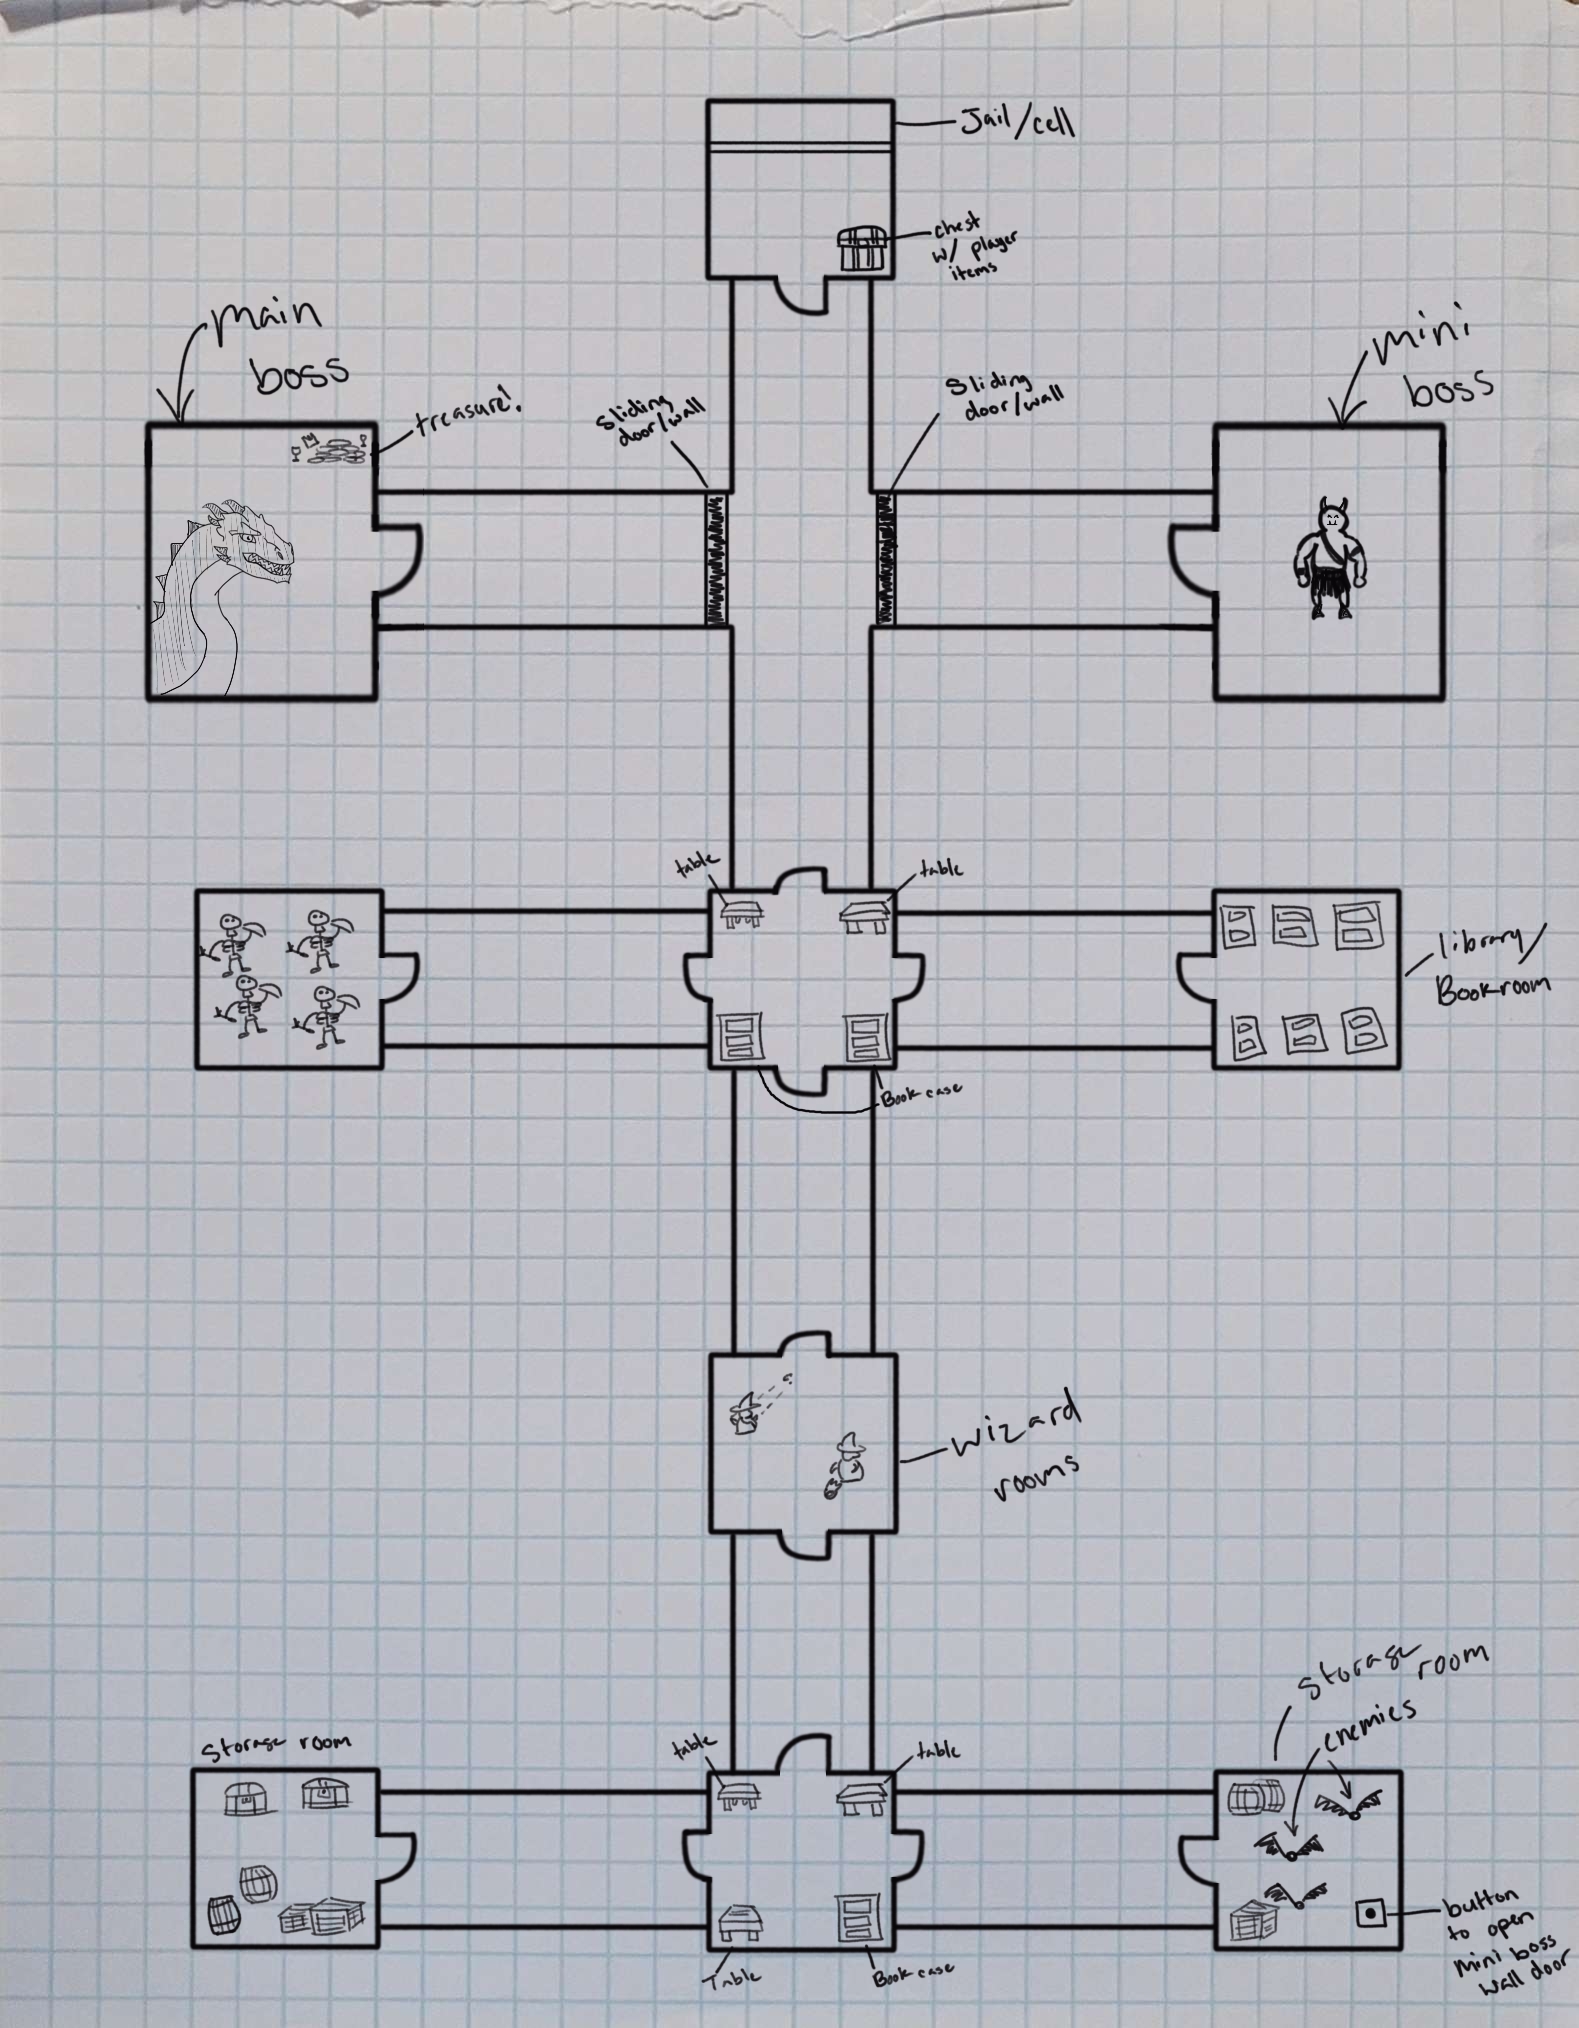 Jail/cell
chest
w/ player
items
main
boss
treasure!
Sliding
door/wall
Sliding
door/wall
mini
boss
table
table
library/
Bookroom
Book case
wizard
rooms
Storage room
table
table
Table
Book case
Storage
room
enemies
button
to open
mini boss
wall door